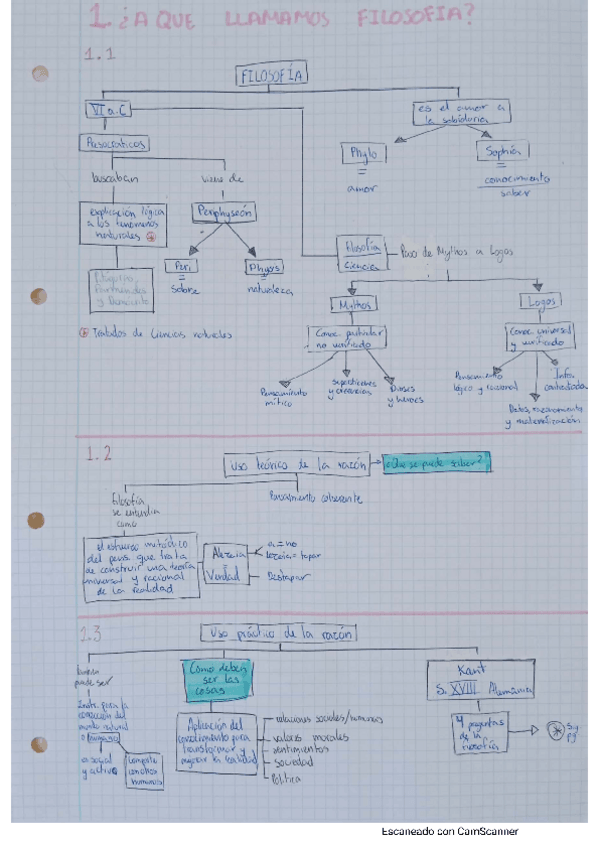 1. ¿A QUE LLAMAMOS FILOSOFIA?
1.1
FILOSOFÍA
VI a.C
Presocraticos
buscaban
explicación lógica
a los fenomenos
naturales
Tratados de Ciencias naturales
viene de
Periphyseón
Peri
=
sobre
Physis
naturaleza
es el amor a
la sabiduria
Phylo
=
amor
Sophía
=
conocimiento
saber
Filosofía
Ciencias
Paso de Mythos a Logos
Mythos
Conoc particular
no unificado
Pensamiento
mítico
supersticiones
y creencias
Dioses
y héroes
Logos
Conoc universal
y unificado
Pensamiento
lógico y racional
Datos, razonamiento
y matematización
Info.
contrastada
1.2
Uso teórico de la razón
¿Que se puede saber?
filosofía
se entendía
como
Pensamiento coherente
el esfuerzo metódico
del pens. que trata
de construir una teoría
universal y racional
de la realidad
Aletheia
Verdad
a = no
= tapar
Destapar
1.3
Uso práctico de la razón
puede ser
Instr. para la
del
mundo natural
o humano
social
y activo
humanos
Como deben
ser las
cosas
Aplicación del
conocimiento para
transformar y
mejorar la realidad
relaciones sociales/humanas
valores morales
sentimientos
sociedad
Política
Kant
S. XVIII Alemania
4 preguntas
de la
filosofía
Sig
pg
Escaneado con CamScanner